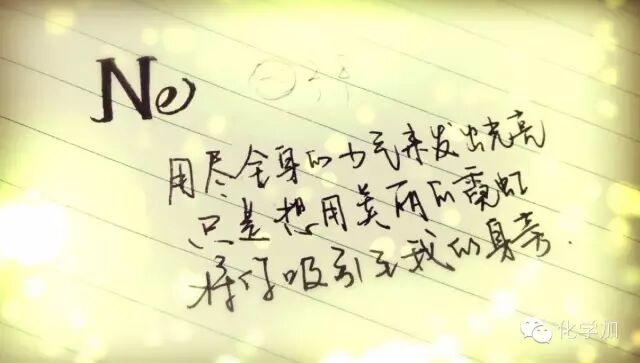 Ne
用尽全身的力气来发出光亮
只是想用美丽的霓虹
将你吸引至我的身旁.
化学加